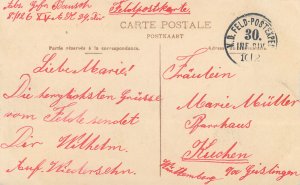 Feldpostkarte
CARTE POSTALE
POSTKAART
Partie réservée à la correspondance.
K.D. FELD-POSTEXPED.
30.
INF. DIV.
Liebe Marie!
Die herzlichsten Grüsse
vom Felde sendet
Dir Wilhelm.
Auf Wiedersehn.
Fräulein
Marie Müller
Pfarrhaus
Kuchen
Württemberg bei Geislingen